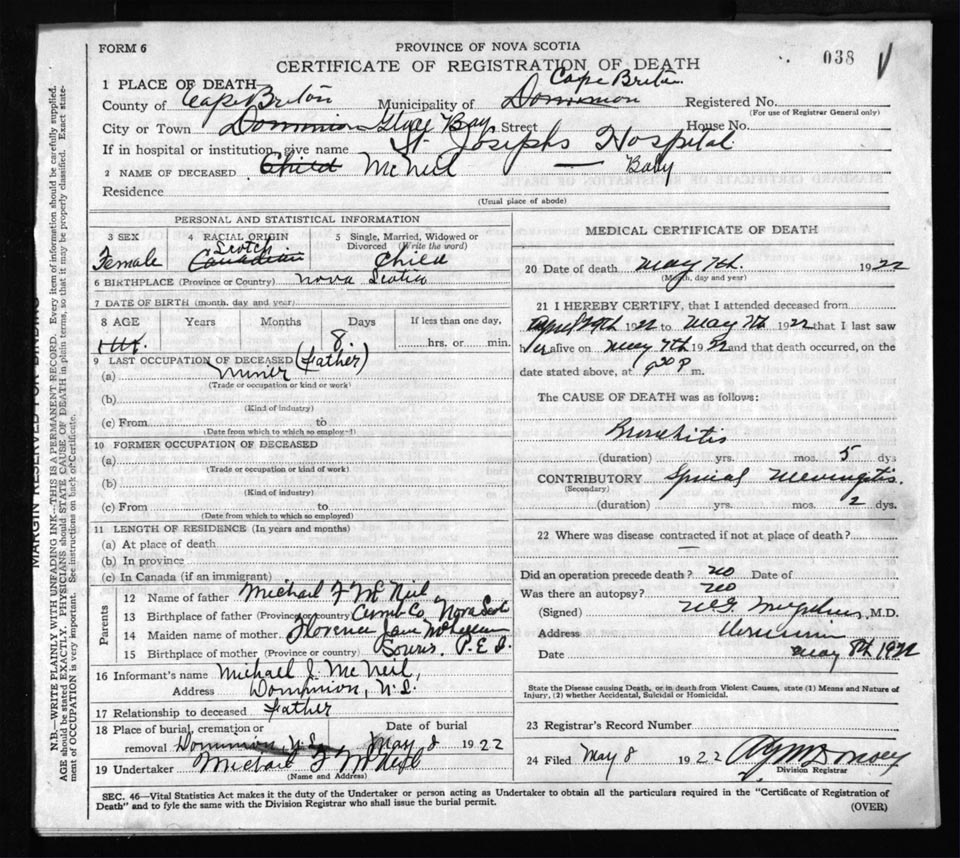 FORM 6
PROVINCE OF NOVA SCOTIA
CERTIFICATE OF REGISTRATION OF DEATH
038
1 PLACE OF DEATH—
Cape Breton
County of Cape Breton Municipality of Dominion Registered No.
(For use of Registrar General only)
City or Town Dominion Glace Bay Street House No.
If in hospital or institution, give name St. Josephs Hospital
2 NAME OF DECEASED Child McNeil — Baby
Residence
(Usual place of abode)
PERSONAL AND STATISTICAL INFORMATION
3 SEX
4 RACIAL ORIGIN
5 Single, Married, Widowed or Divorced (Write the word)
Female
Scotch
Canadian
Child
6 BIRTHPLACE (Province or Country) Nova Scotia
7 DATE OF BIRTH (month, day and year)
8 AGE Years Months Days If less than one day,
8 hrs. or min.
9 LAST OCCUPATION OF DECEASED (Father)
(a) Miner
(Trade or occupation or kind or work)
(b)
(Kind of industry)
(c) From to
(Date from which to which so employed)
10 FORMER OCCUPATION OF DECEASED
(a)
(Trade or occupation or kind of work)
(b)
(Kind of industry)
(c) From to
(Date from which to which so employed)
11 LENGTH OF RESIDENCE (In years and months)
(a) At place of death
(b) In province
(c) In Canada (if an immigrant)
Parents
12 Name of father Michael J McNeil
13 Birthplace of father (Province or country) Cumb Co, Nova Scot
14 Maiden name of mother Florence Jane
15 Birthplace of mother (Province or country) Souris, P.E.I.
16 Informant's name Michael J. McNeil,
Address Dominion, N.S.
17 Relationship to deceased Father
18 Place of burial, cremation or removal Dominion, N.S. Date of burial May 8 1922
19 Undertaker Michael J McNeil
(Name and Address)
MEDICAL CERTIFICATE OF DEATH
20 Date of death May 7th 1922
(Month, day and year)
21 I HEREBY CERTIFY, that I attended deceased from
April 1922 to May 7th 1922 that I last saw
her alive on May 7th 1922 and that death occurred, on the
date stated above, at 9 30 P m.
The CAUSE OF DEATH was as follows:
Bronchitis
(duration) yrs. mos. 5 dys
CONTRIBUTORY Spinal Meningitis.
(Secondary)
(duration) yrs. mos. 2 dys.
22 Where was disease contracted if not at place of death?
—
Did an operation precede death? no Date of
Was there an autopsy? no
(Signed) M.D.
Address Dominion
Date May 8th 1922
State the Disease causing Death, or in death from Violent Causes, state (1) Means and Nature of Injury, (2) whether Accidental, Suicidal or Homicidal.
23 Registrar's Record Number
24 Filed May 8 1922
Division Registrar
SEC. 46—Vital Statistics Act makes it duty of the Undertaker or person acting as Undertaker to obtain all the particulars required in the "Certificate of Registration of
Death" and to fyle the same with the Division Registrar who shall issue the burial permit. (OVER)
MARGIN RESERVED FOR BINDING
N.B.—WRITE PLAINLY WITH UNFADING INK—THIS IS A PERMANENT RECORD. Every item of information should be carefully supplied.
AGE should be stated EXACTLY. PHYSICIANS should STATE CAUSE OF DEATH in plain terms, so that it may be properly classified. Exact statement of OCCUPATION is very important. See instructions on back of Certificate.